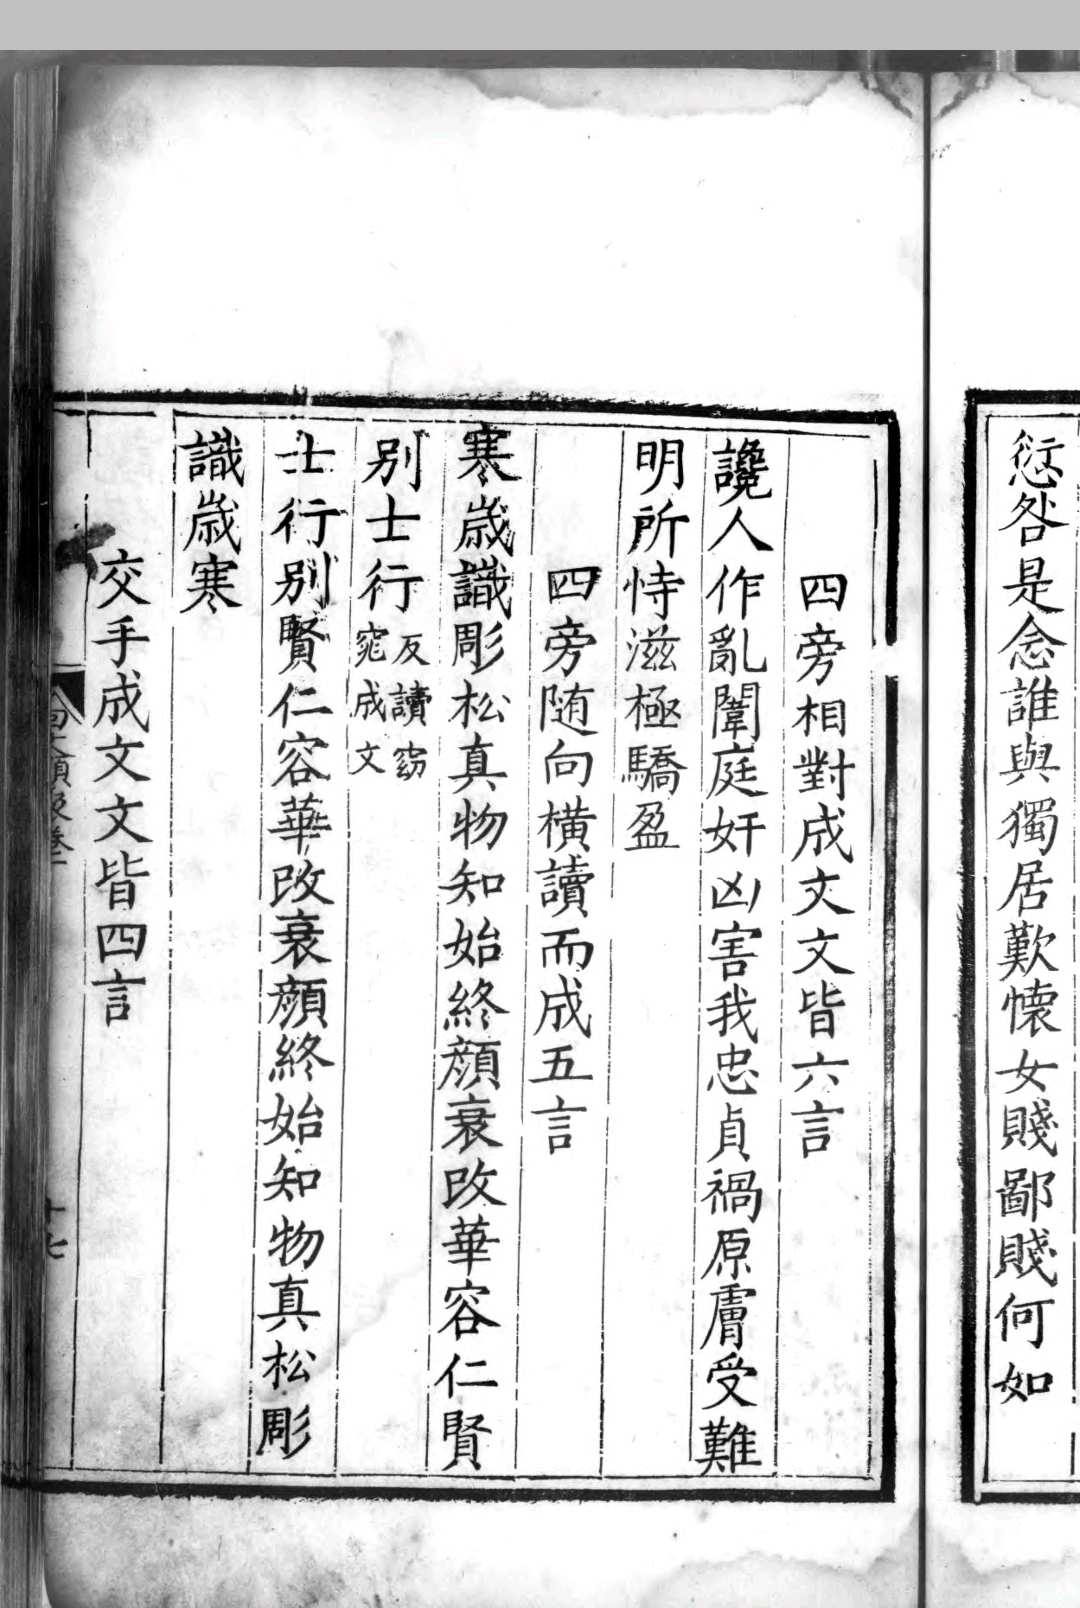 愆咎是念誰與獨居歎懷女賤鄙賤何如
四旁相對成文文皆六言
讒人作亂闈庭奸凶害我忠貞禍原膚受難
明所恃滋極驕盈
四旁随向橫讀而成五言
寒歲識彫松真物知始終顏衰改華容仁賢
別士行
反讀窈
窕成文
士行別賢仁容華改衰顏終始知物真松彫
識歲寒
交手成文文皆四言
十七